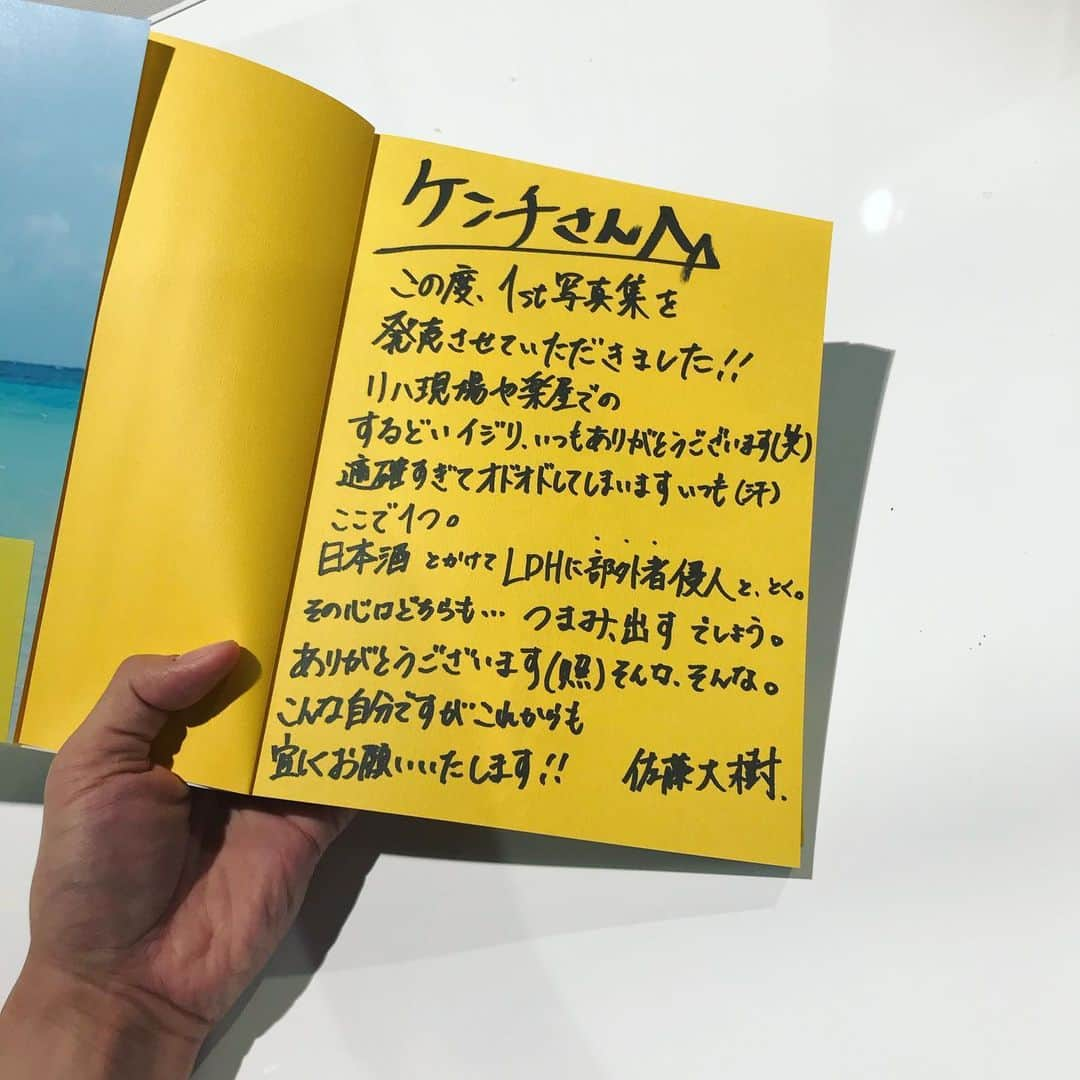 ケンチさんへ
この度、1st写真集を
発売させていただきました!!
リハ現場や楽屋での
するどいイジリ、いつもありがとうございます(笑)
適確すぎてオドオドしてしまいますいつも(汗)
ここで1つ。
日本酒とかけてLDHに部外者侵人と、とく。
その心はどちらも… つまみ、出すでしょう。
ありがとうございます(照)そんな、そんな。
こんな自分ですがこれからも
宜しくお願いいたします!! 佐藤大樹.